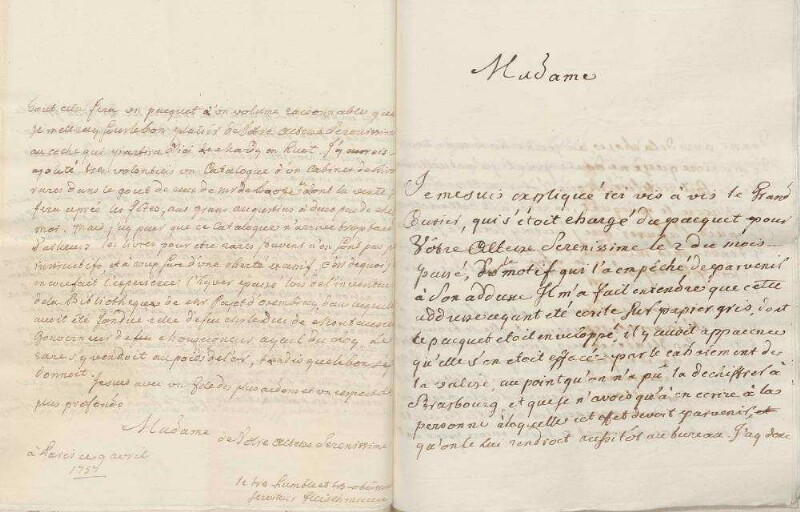 tout cela fera un pacquet d'un volume raisonnable que
je mettray sur le bon plaisir de Votre Altesse Serenissime
au coche qui partira d'ici
ajouté tres volontiers un Catalogue d'un Cabinet de livres
rares dans le gout de ceux de mr de dont la vente
fera après les fetes, aux grans augustins à deux pas de chez
moi. mais j'ay peur que ce Catalogue n'arrive trop tard
d'ailleurs les livres pour être rares souvent n'en sont pas plus
instructifs et à coup sur d'une cherté
m'en a fait l'experience l'hyver passé lors de l'inventaire
de la Bibliotheque de dans laquelle
avoit été fondue celle de feu
Gouverneur de feu Monseigneur ayeul du Roy. Le
rare s'y vendoit au poids de l'or, tandis que le bon se
donnoit.
Je suis avec un zele des plus ardens et un respect des
plus profonds
Madame
de Votre Altesse Serenissime
à Paris ce 9 avril
1757
le tres humble et tres obeissant
serviteur
Madame
Je me suis expliqué ici vis à vis le Grand
Cusier, qui s'étoit chargé du pacquet pour
Votre Altesse Serenissime le 2 du mois
passé, du motif qui l'a empêché de parvenir
à son addresse. Il m'a fait entendre que cette
addresse ayant été ecrite sur papier gris, dont
le pacquet étoit enveloppé, il y avoit apparence
qu'elle s'en étoit effacée par le cahotement de
la valise, au point qu'on n'a pu la dechiffrer à
Strasbourg, et que je n'avois qu'à en ecrire à la
personne à laquelle cet effet devoit parvenir, et
qu'on le lui rendroit aussitot au bureau. J'ay donc